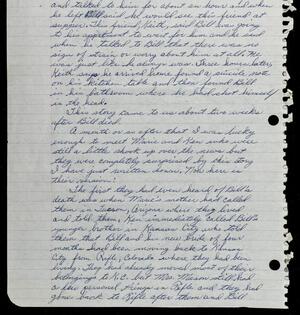 and talked to him for about an hour and when
he left Bill said he would see this friend at
supper. This friend, Keith, said Bill was going
to his apartment to wait for him and he said
when he talked to Bill that there was no
sign of stress or worry about him at all. He
was just like he always was. Three hours later,
Keith says he arrived home, found a suicide note
on his kitchen table and then found Bill
in his bathroom where he had shot himself
in the head.
This story came to us about two weeks
after Bill died.
A month or so after that I was lucky
enough to meet Marie and Ken who were
still a little shook up over the news but
they were completely surprised by this story
I have just written down. Now here is
their version!
The first they had even heard of Bill's
death was when Marie's mother had called
them in Tucson, Arizona where they lived
and told them, Ken immediately called Bill's
younger brother in Kansas City who told
them that Bill and his new bride of four
months had been moving back to Kansas
City from Rifle, Colorado where they had been
living. They had already moved most of their
belongings to K.C. but Mrs. still had
a few personal things in Rifle and they had
gone back to Rifle after them and Bill